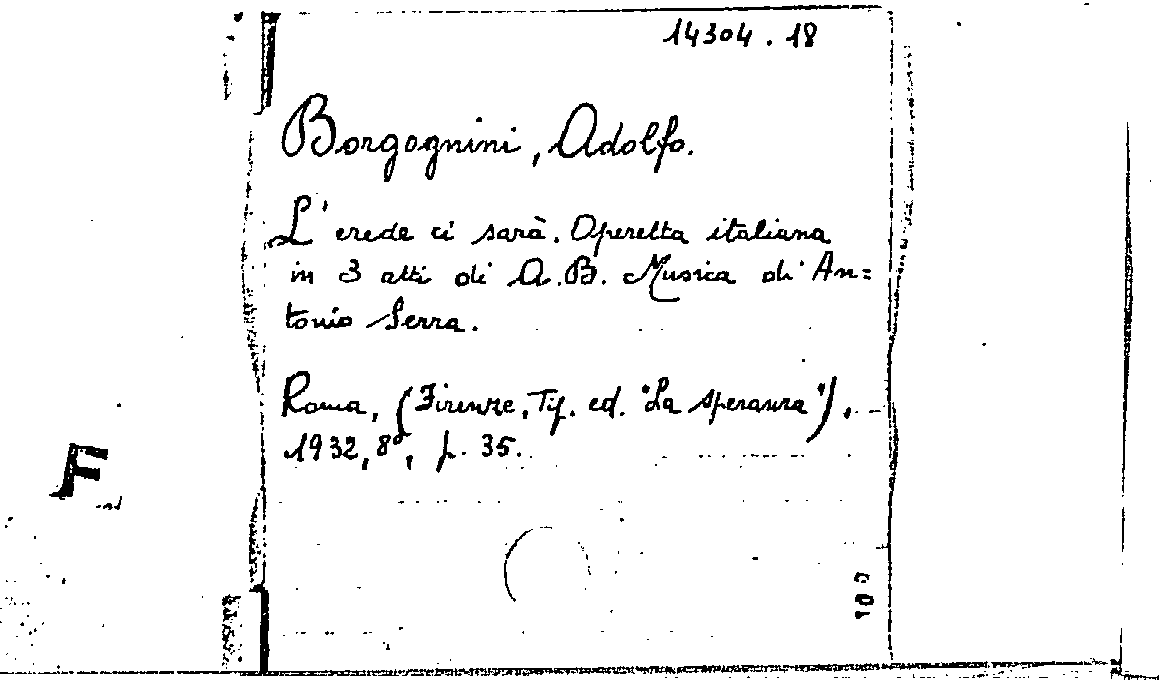 14304.18
Borgognini, Adolfo.
L'erede ci sarà. Operetta italiana
in 3 atti di A.B. Musica di An=
tonio Serra.
Roma, (Firenze, Tip. ed. "La speranza"),
1932, 8°, p. 35.
F
100